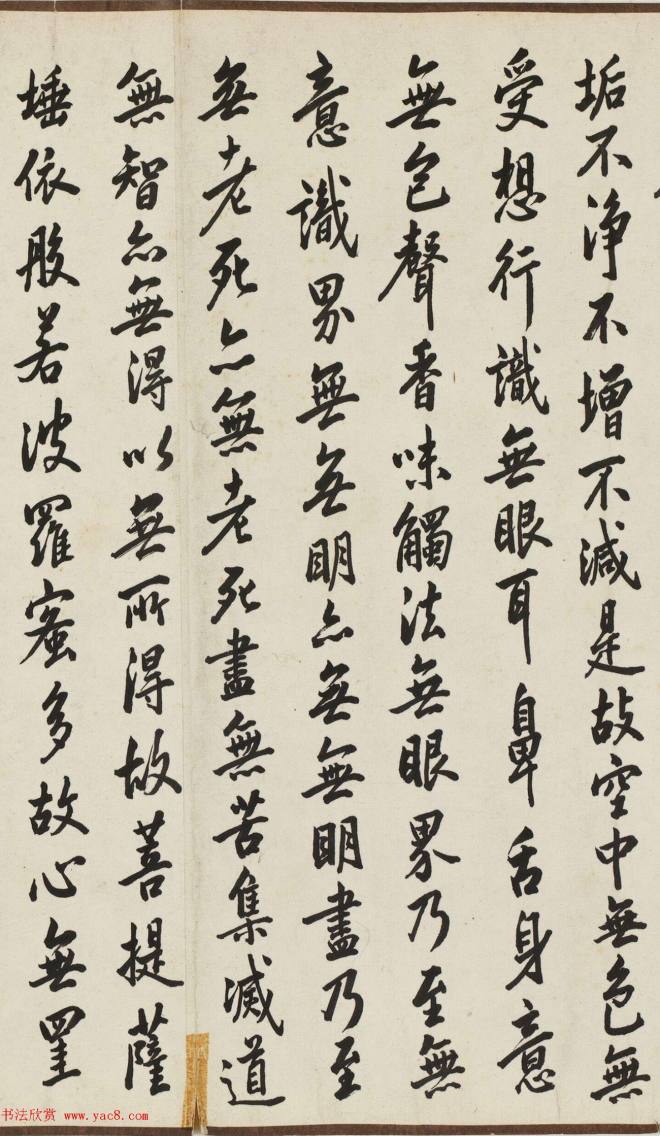 垢不淨不增不減是故空中無色無
受想行識無眼耳鼻舌身意
無色聲香味觸法無眼界乃至無
意識界無無明亦無無明盡乃至
無老死亦無老死盡無苦集滅道
無智亦無得以無所得故菩提薩
埵依般若波羅蜜多故心無罣
书法欣赏 www.yac8.com